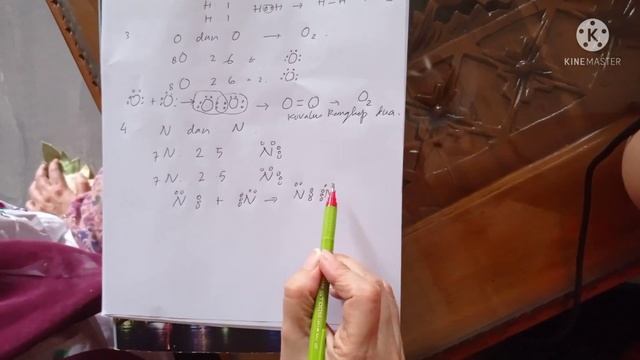 H 1 H H → H - H
H 1
3 O dan O → O₂.
₈O 2 6 Ö
₈O 2 6 Ö
Ö + Ö → Ö Ö → O = O → O₂
Kovalen Rangkap dua.
4 N dan N
₇N 2 5 N
₇N 2 5 N
N + N → N N
KINEMASTER